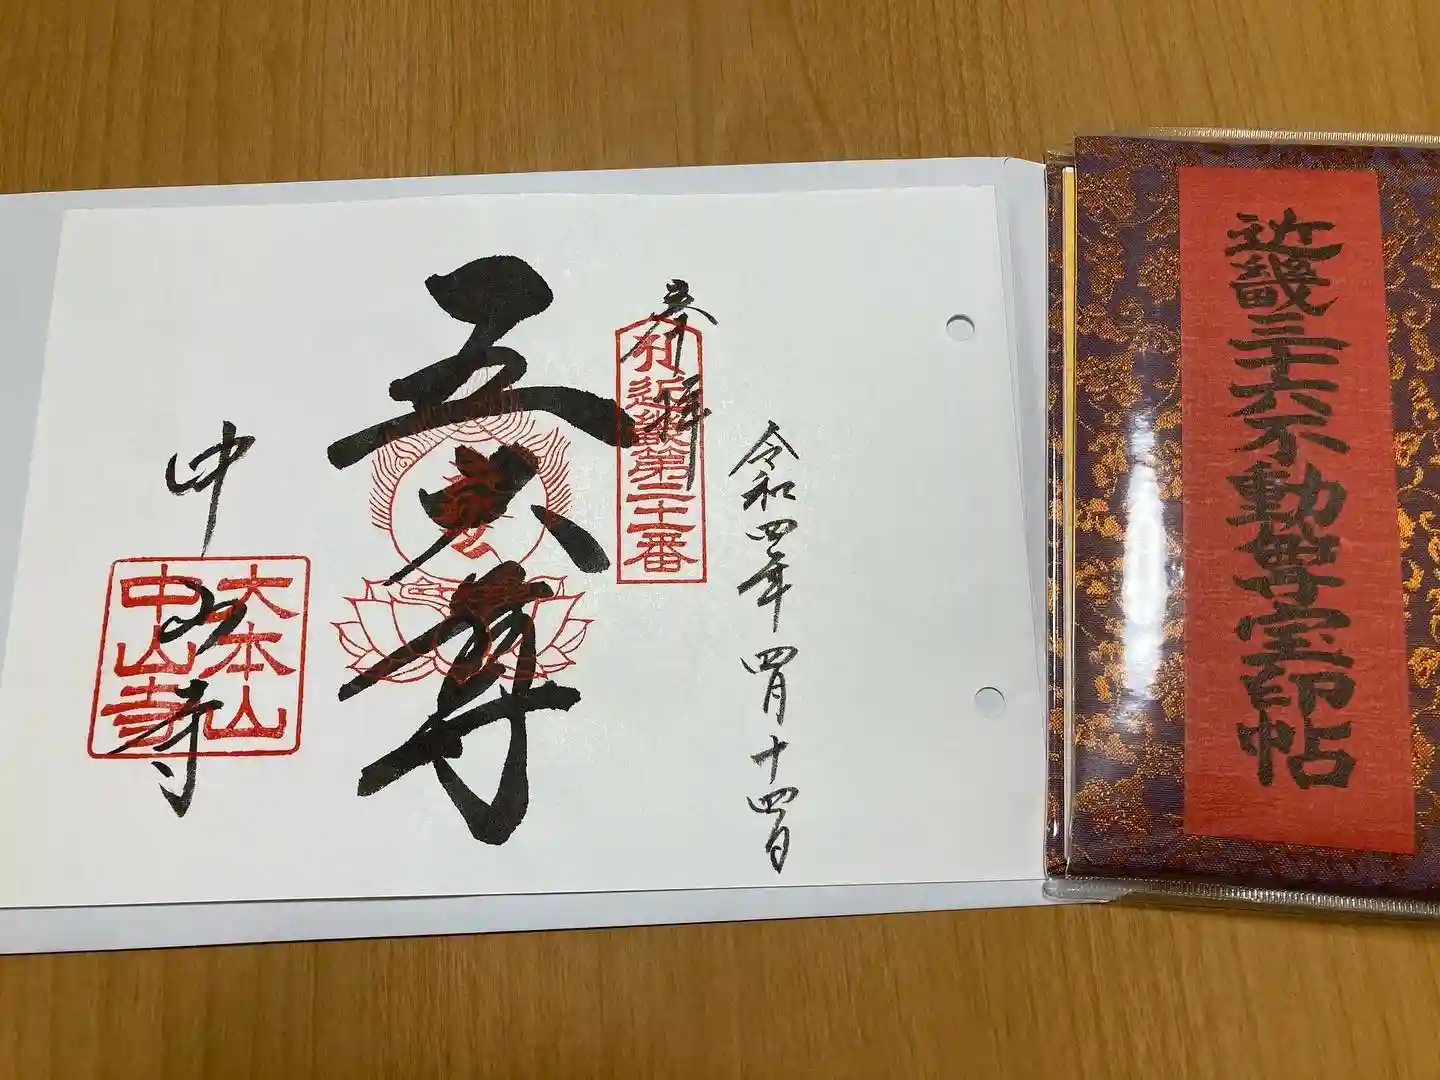 近畿三十六不動尊宝印帖
令和四年四月十四日
奉拝
近畿第二十一番
五大尊
中山寺
大本山
中山寺